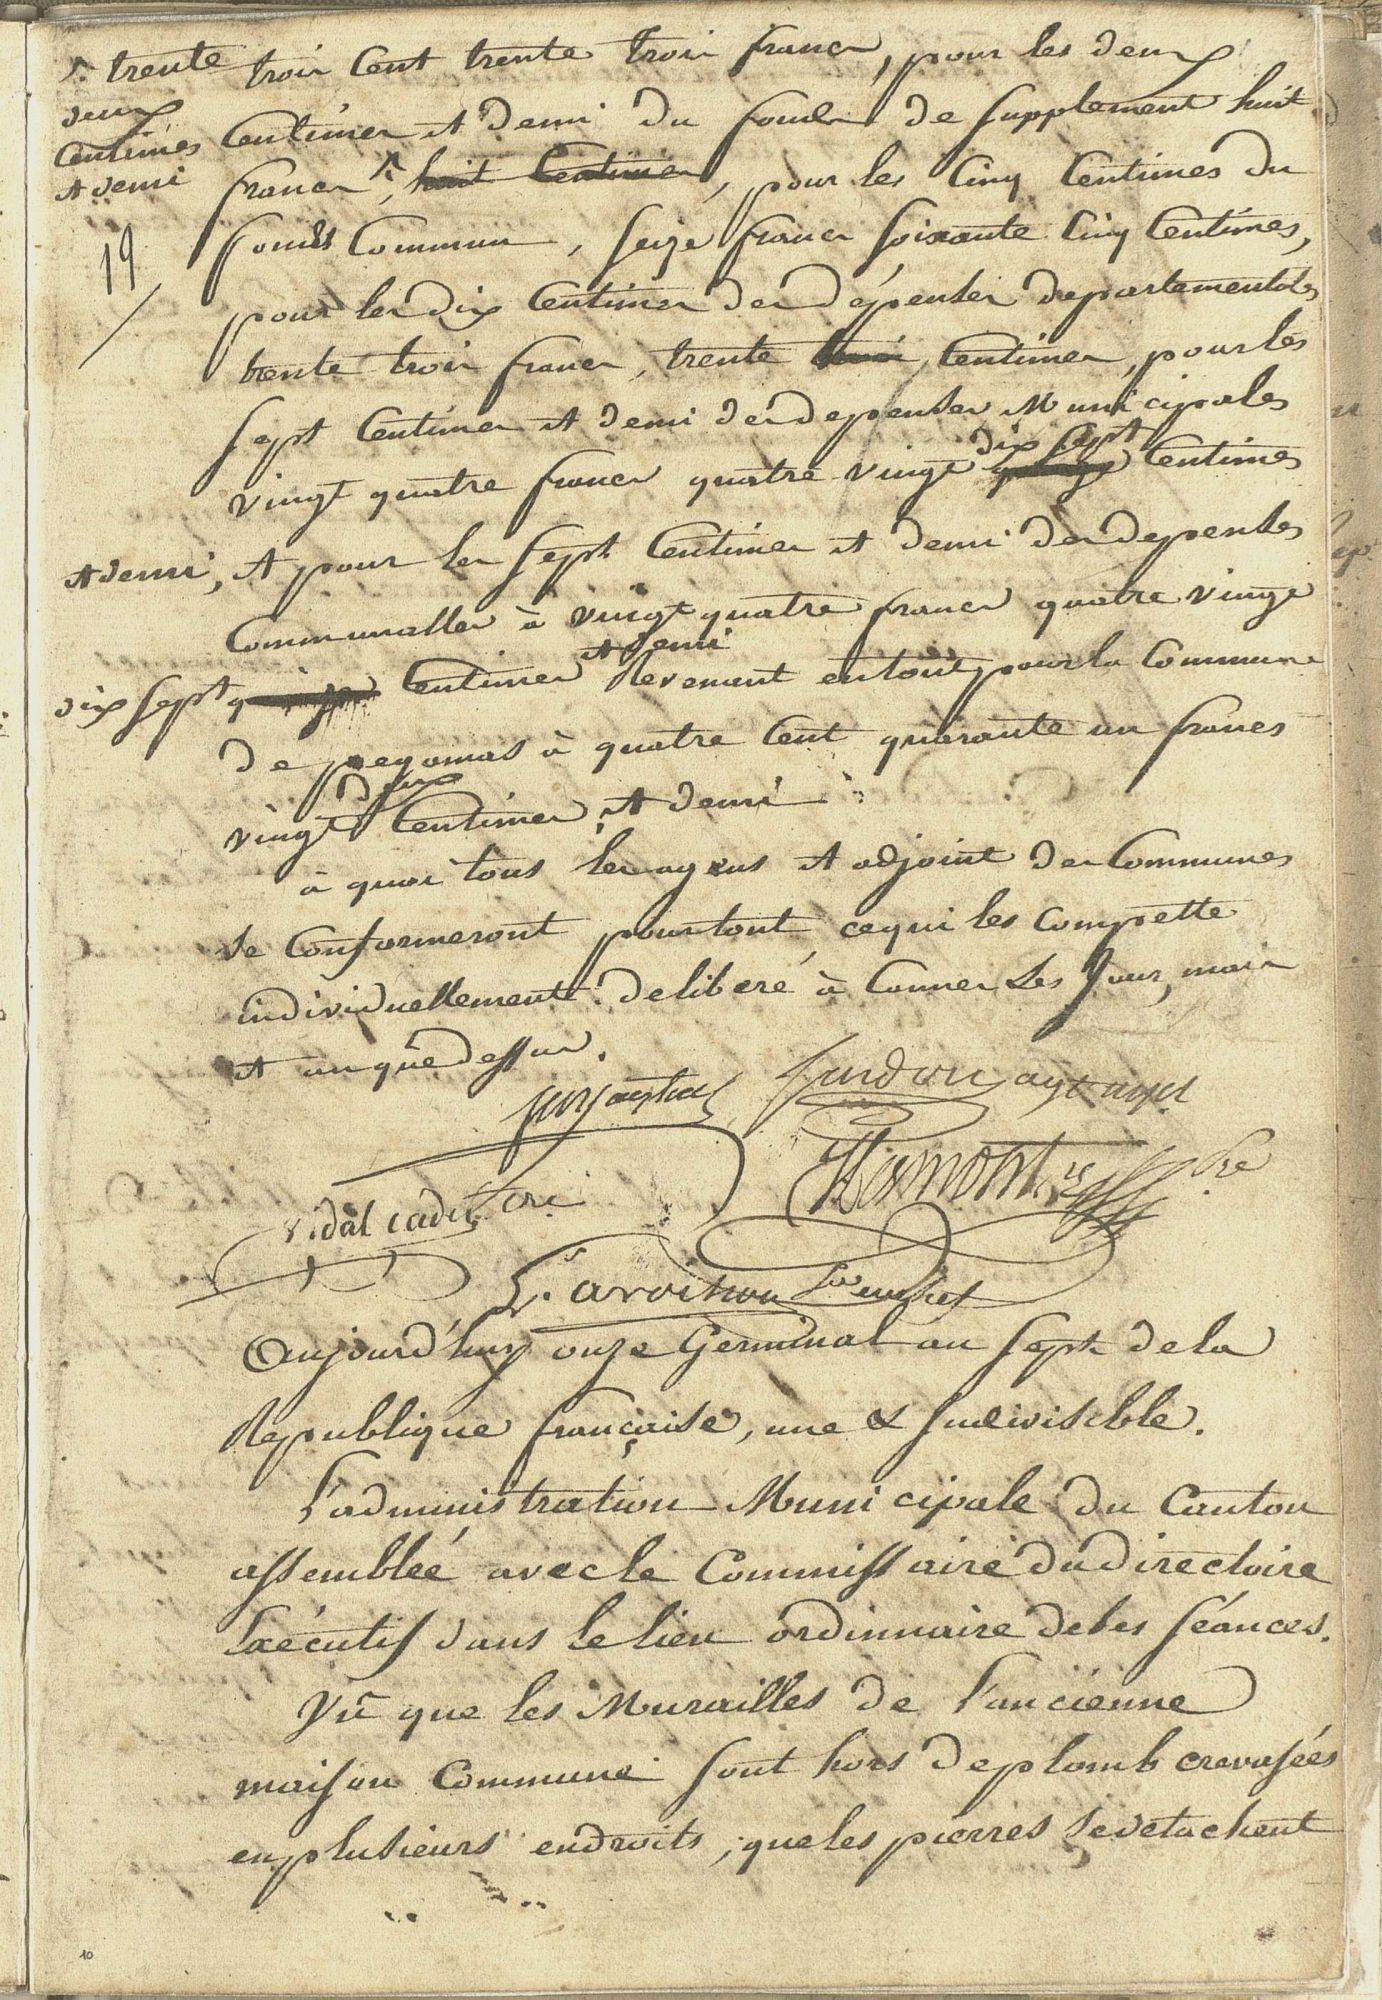 trente
deux
Centimes
et demi
19
trois Cent trente trois francs, pour les deux
Centimes et demi du fonds de supplement huit
francs, huit Centimes, pour les Cinq Centimes du
fonds Commun, seize francs soixante Cinq Centimes,
pour les dix Centimes des dépenses departementales
trente trois francs, trente trois Centimes, pour les
sept Centimes et demi des depenses Municipales
dix sept
vingt quatre francs quatre vingt quinze Centimes
et demi, et pour les sept Centimes et demi des depenses
Communalles à vingt quatre francs quatre vingt
et demi
dix sept quinze Centimes Revenant en tout pour la Commune
de pegomas à quatre Cent quarante un francs
deux
vingt Centimes et demi
à quoi tous les agens et adjoint des Communes
se Conformeront pour tout ce qui les Compette
individuellement. deliberé à Cannes Les Jour, mois
et an que dessus.
Jourdan agt mpl
vidal cadet
Aujourd'huy onze Germinal an sept de la
Republique française, une & Indivisible.
L'administration Municipale du Canton
assembleé avec le Commissaire du directoire
Exécutif dans le lieu ordinnaire de ses séances.
Vû que les Murailles de l'anciénne
maison Commune sont hors deplomb crevasées
en plusieurs endroits, que les pierres se detachent
10